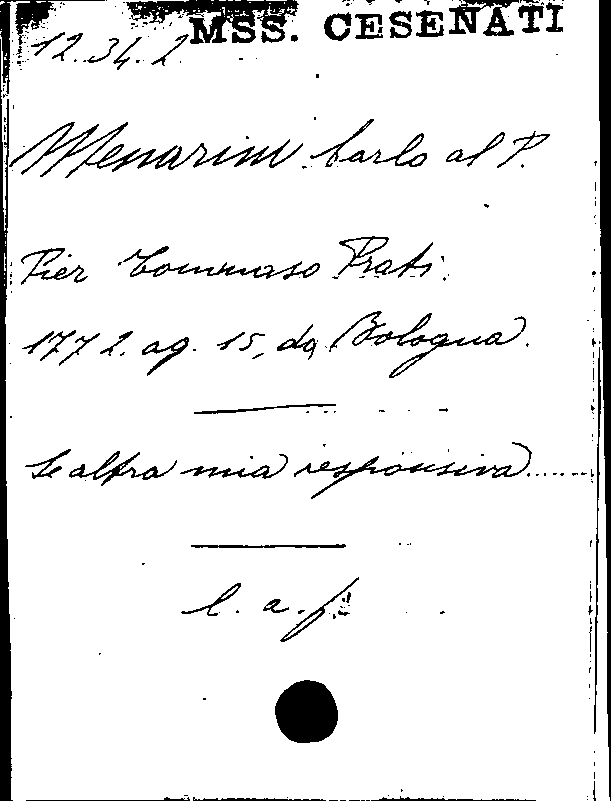 MSS. CESENATI
12.34.2
Menarini Carlo al P.
Pier Tommaso Prati.
1772. ag. 15, da Bologna.
Se altra mia responsiva........
l. a. f.